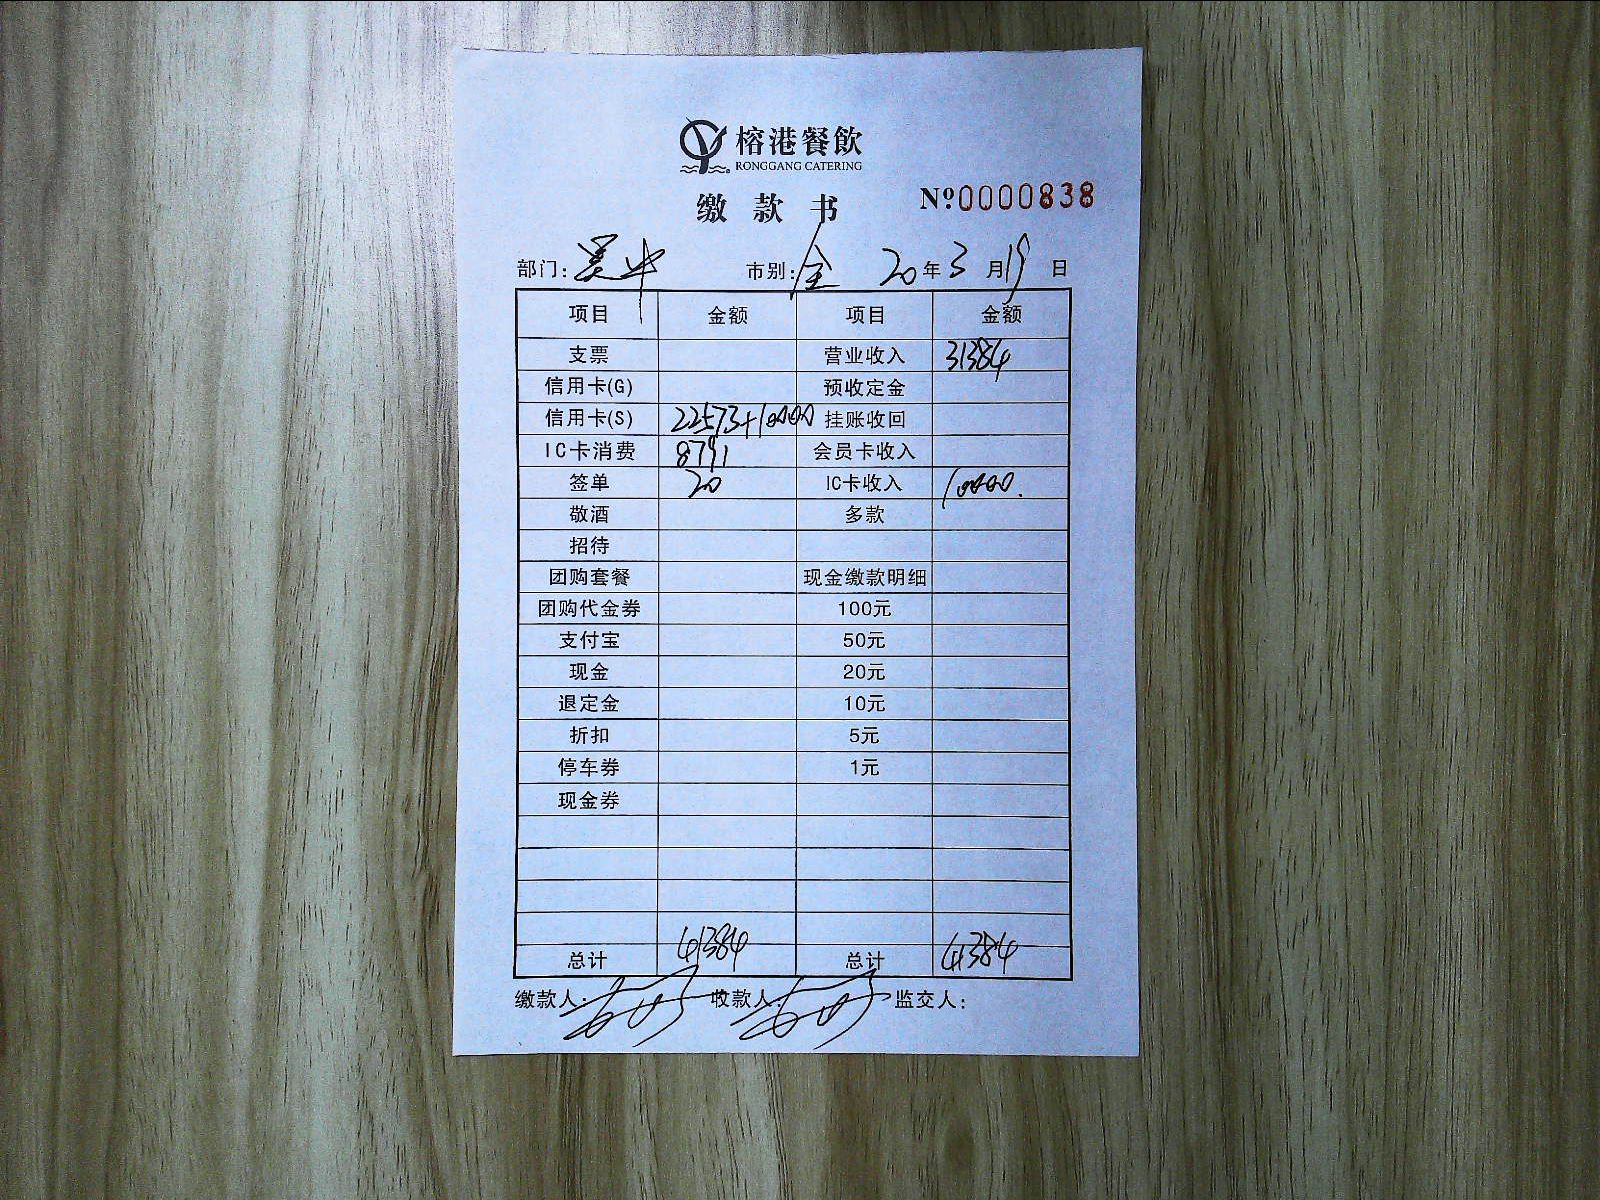 榕港餐飲
RONGGANG CATERING
缴款书 №0000838
部门: 吴中 市别: 全 20年3月19日
项目 金额 项目 金额
支票 营业收入 31384
信用卡(G) 预收定金
信用卡(S) 22573+10000 挂账收回
IC卡消费 8791 会员卡收入
签单 20 IC卡收入 10000.
敬酒 多款
招待
团购套餐 现金缴款明细
团购代金券 100元
支付宝 50元
现金 20元
退定金 10元
折扣 5元
停车券 1元
现金券
总计 41384 总计 41384
缴款人: 收款人: 监交人: